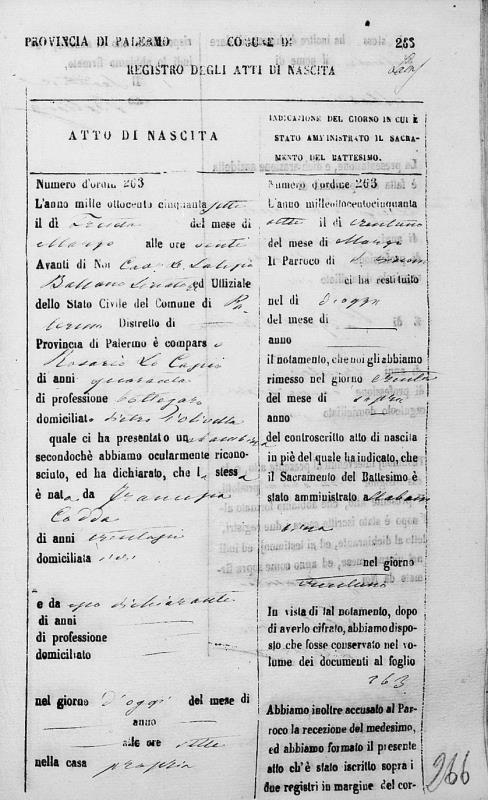 PROVINCIA DI PALERMO COMUNE DI 263
REGISTRO DEGLI ATTI DI NASCITA
ATTO DI NASCITA
Numero d'ordine 263
L'anno mille ottocento cinquanta sette
il dì Trenta del mese di
Marzo alle ore venti
Avanti di Noi
ed Uffiziale
dello Stato Civile del Comune di Pa-
lermo Distretto di
Provincia di Palermo è comparso
Rosario Lo
di anni quaranta
di professione bottegaro
domiciliato dietro
quale ci ha presentato una bambina
secondochè abbiamo ocularmente ricono-
sciuto, ed ha dichiarato, che la stessa
è nata da Francesca
di anni
domiciliata ivi
e da esso dichiarante
di anni
di professione
domiciliato
nel giorno d'oggi del mese di
anno
alle ore sette
nella casa propria
INDICAZIONE DEL GIORNO IN CUI È
STATO AMMINISTRATO IL SACRA-
MENTO DEL BATTESIMO.
Numero d'ordine 263
L'anno milleottocentocinquanta
sette il dì trentuno
del mese di Marzo
Il Parroco di S.
ci ha restituito
nel dì d'oggi
del mese di
anno
il notamento, che noi gli abbiamo
rimesso nel giorno trenta
del mese di sopra
anno
del controscritto atto di nascita
in piè del quale ha indicato, che
il Sacramento del Battesimo è
stato amministrato alla bam
bina
nel giorno
trentuno
In vista di tal notamento, dopo
di averlo cifrato, abbiamo dispo-
sto che fosse conservato nel vo-
lume dei documenti al foglio
263
Abbiamo inoltre accusato al Par-
roco la recezione del medesimo,
ed abbiamo formato il presente
atto ch'è stato iscritto sopra i
due registri in margine del cor-
266